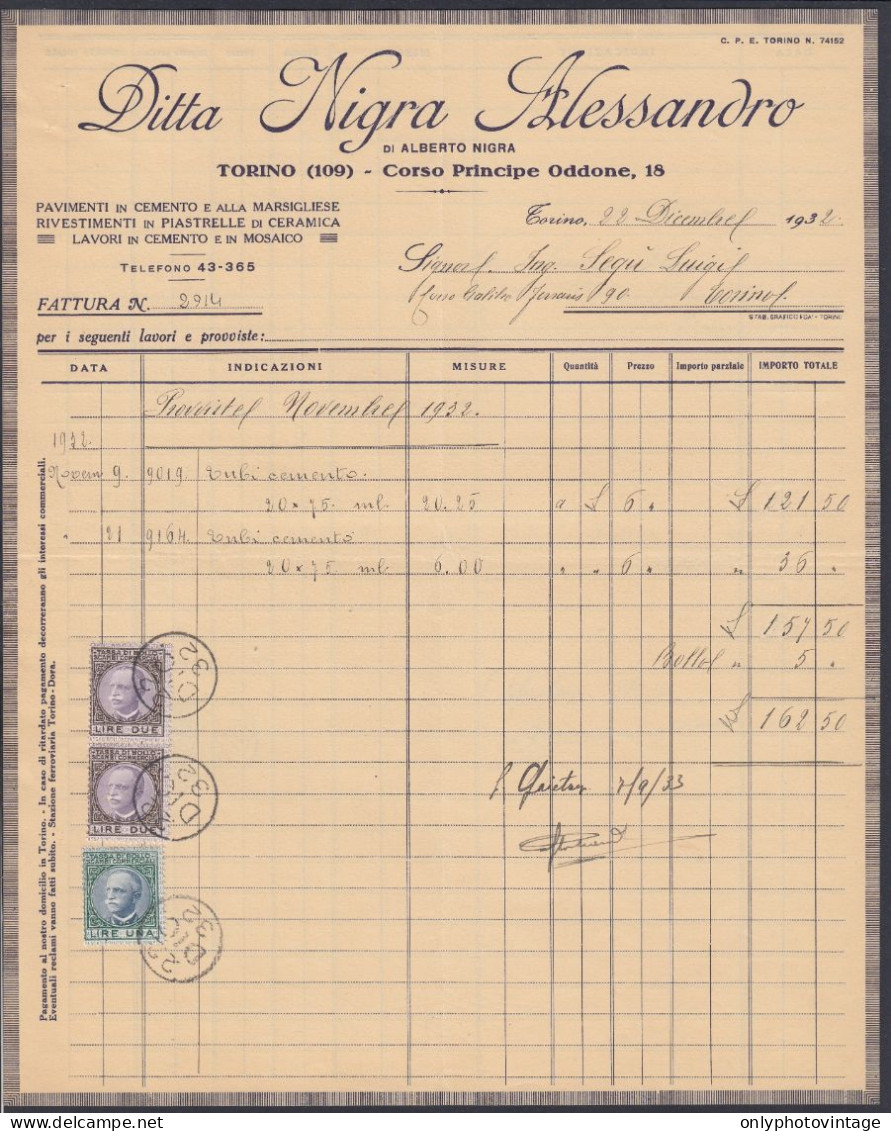 C. P. E. TORINO N. 74152
Ditta Nigra Alessandro
DI ALBERTO NIGRA
TORINO (109) - Corso Principe Oddone, 18
PAVIMENTI IN CEMENTO E ALLA MARSIGLIESE
RIVESTIMENTI IN PIASTRELLE DI CERAMICA
LAVORI IN CEMENTO E IN MOSAICO
TELEFONO 43-365
Torino, 22 Dicembre 1932
Signor Ing. Segù Luigi
Corso Galileo Ferraris 90. Torino
FATTURA N. 2914
STAB. GRAFICO - TORINO
per i seguenti lavori e provviste:
DATA INDICAZIONI MISURE Quantità Prezzo Importo parziale IMPORTO TOTALE
Provviste Novembre 1932.
1932.
Novem 9. 9019. Tubi cemento.
20 × 75 ml. 20.25 a £ 6 " £ 121 50
" 21 9164. Tubi cemento
20 × 75 ml 6.00 " " 6 " " 36 "
£ 157 50
Bollo " 5 "
£ 162 50
7/9/33
TASSA DI BOLLO
SCAMBI COMMERCIALI
LIRE DUE
TASSA DI BOLLO
SCAMBI COMMERCIALI
LIRE DUE
TASSA DI BOLLO
SCAMBI COMMERCIALI
LIRE UNA
Pagamento al nostro domicilio in Torino. - In caso di ritardato pagamento decorreranno gli interessi commerciali.
Eventuali reclami vanno fatti subito. - Stazione ferroviaria Torino - Dora.
delcampe.net
onlyphotovintage